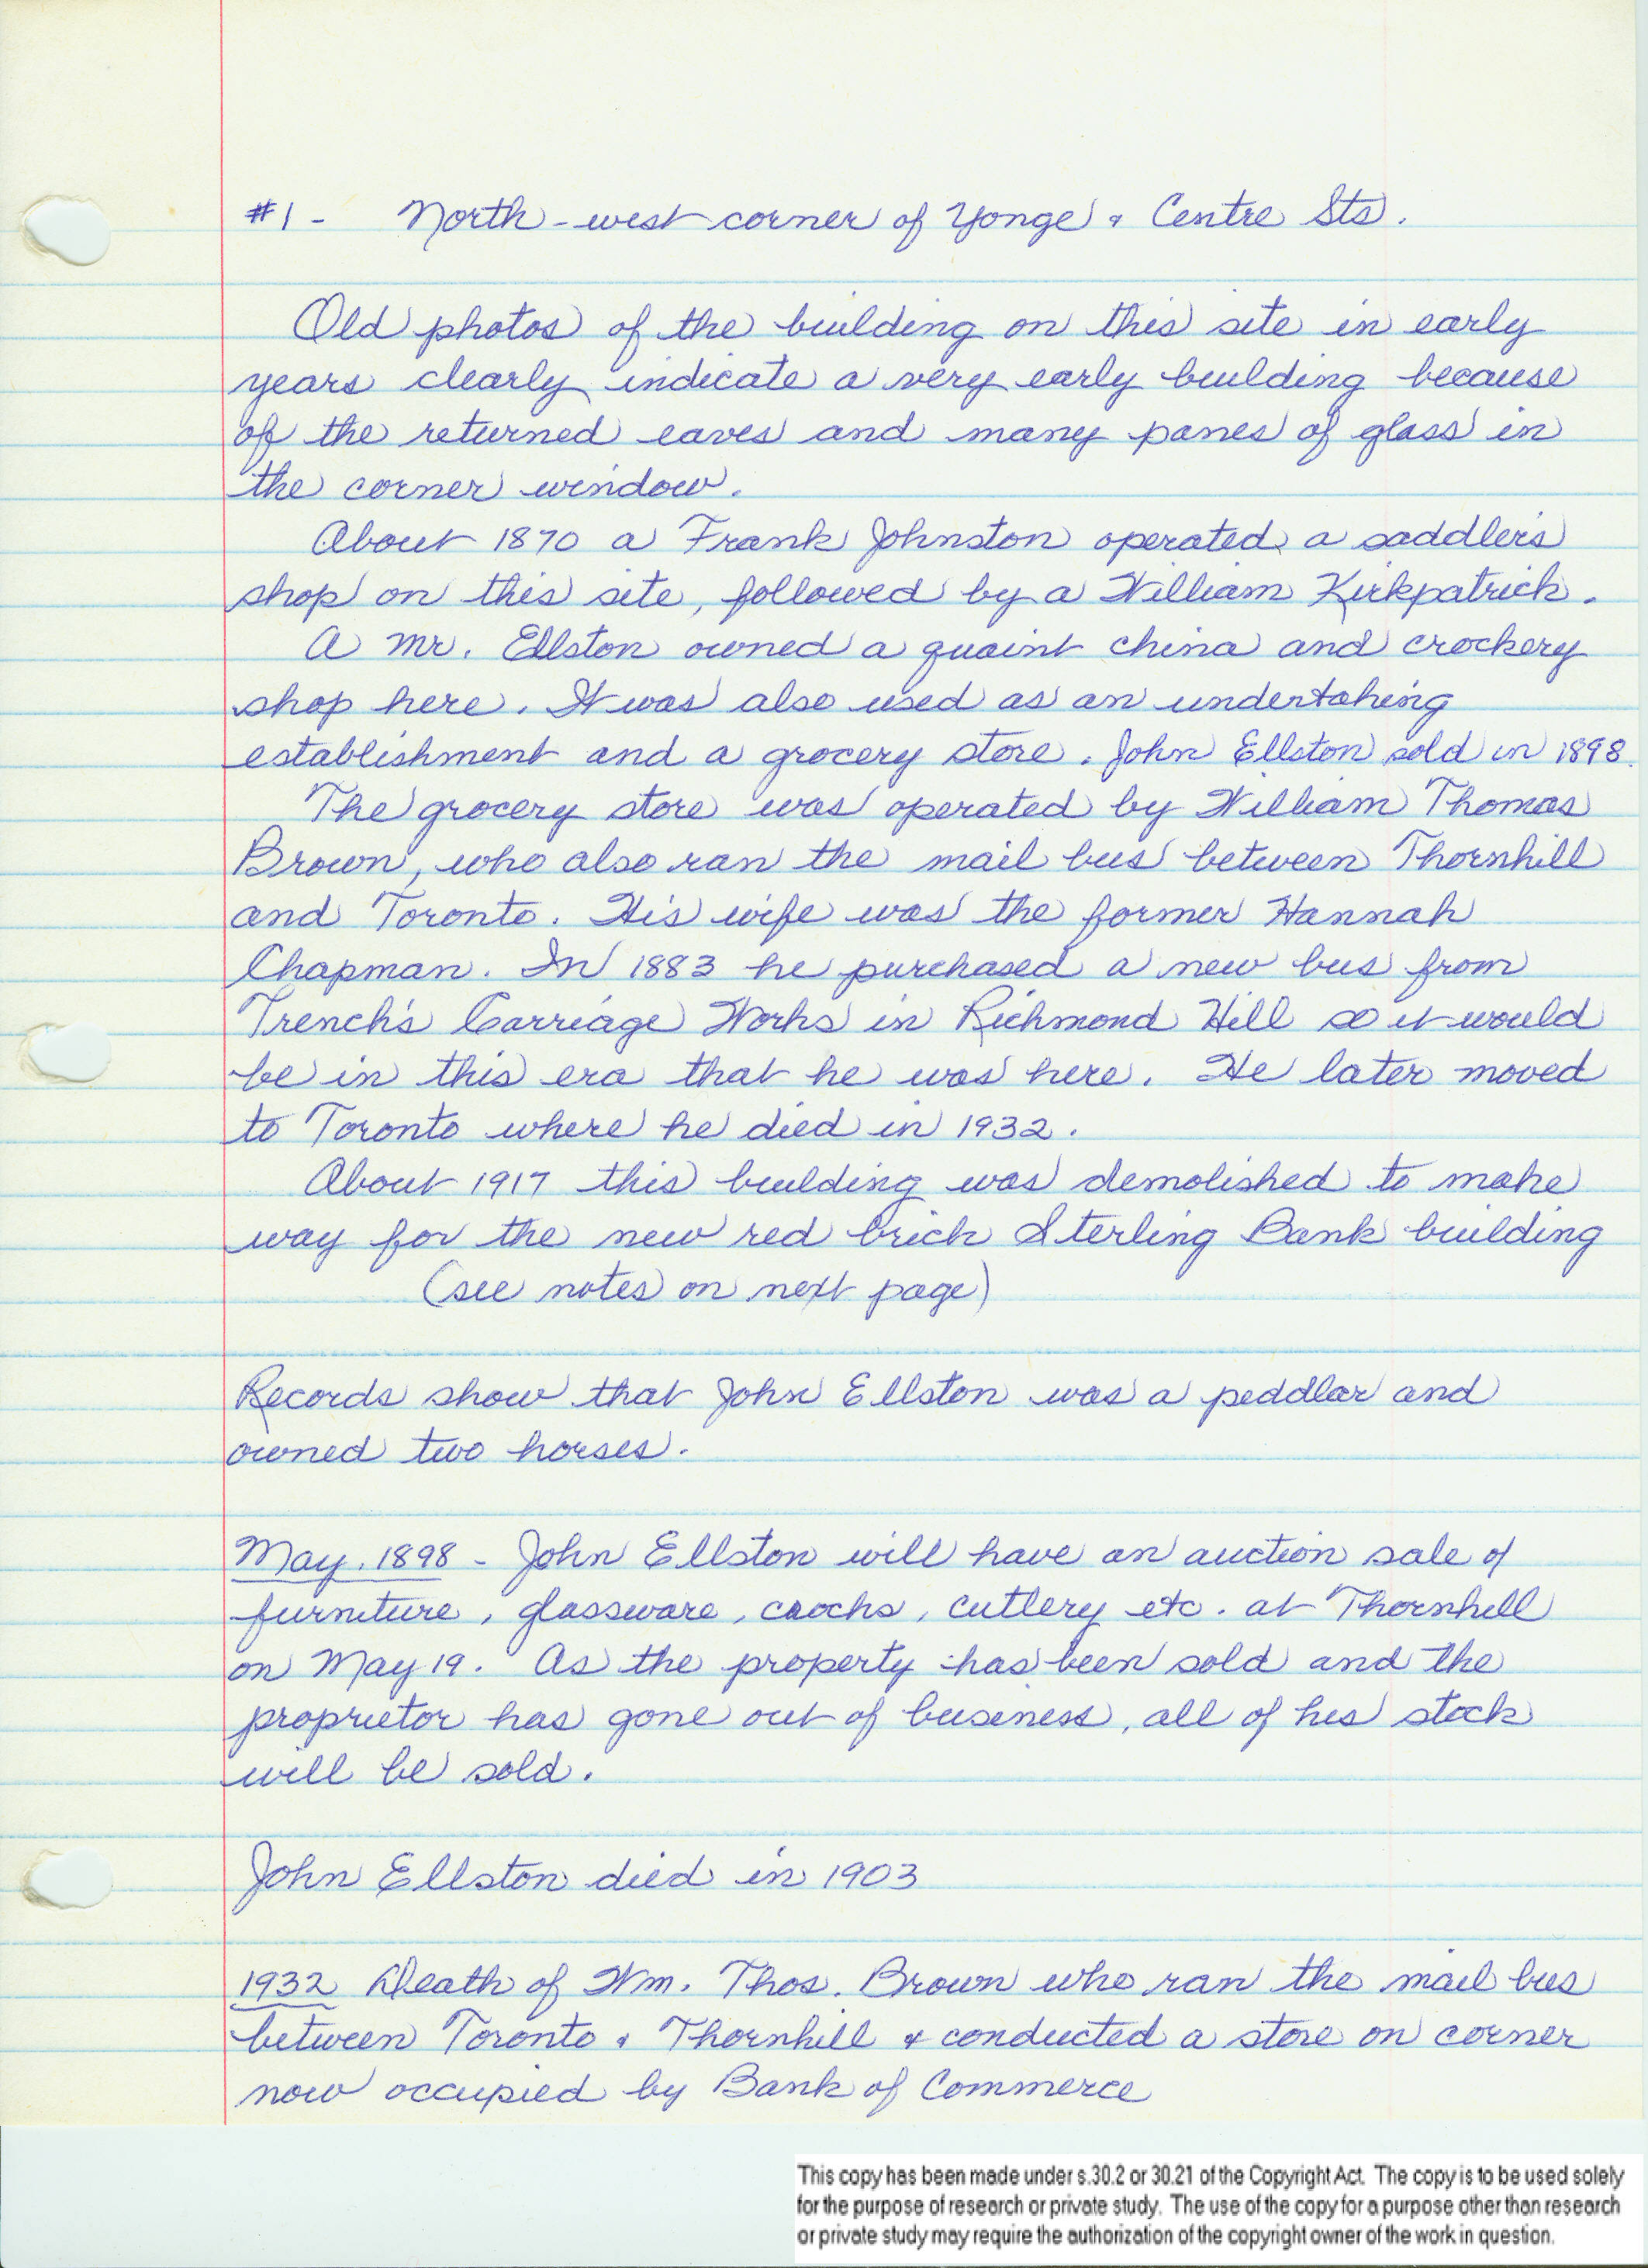 #1 - North-west corner of Yonge & Centre Sts.
Old photos of the building on this site in early
years clearly indicate a very early building because
of the returned eaves and many panes of glass in
the corner window.
About 1870 a Frank Johnston operated a saddler's
shop on this site, followed by a William Kirkpatrick.
A Mr. Ellston owned a quaint china and crockery
shop here. It was also used as an undertaking
establishment and a grocery store. John Ellston sold in 1898.
The grocery store was operated by William Thomas
Brown, who also ran the mail bus between Thornhill
and Toronto. His wife was the former Hannah
Chapman. In 1883 he purchased a new bus from
Trench's Carriage Works in Richmond Hill so it would
be in this era that he was here. He later moved
to Toronto where he died in 1932.
About 1917 this building was demolished to make
way for the new red brick Sterling Bank building
(see notes on next page)
Records show that John Ellston was a peddlar and
owned two horses.
May. 1898 - John Ellston will have an auction sale of
furniture, glassware, crocks, cutlery etc. at Thornhill
on May 19. As the property has been sold and the
proprietor has gone out of business, all of his stock
will be sold.
John Ellston died in 1903
1932 Death of Wm. Thos. Brown who ran the mail bus
between Toronto & Thornhill & conducted a store on corner
now occupied by Bank of Commerce
This copy has been made under s.30.2 or 30.21 of the Copyright Act. The copy is to be used solely
for the purpose of research or private study. The use of the copy for a purpose other than research
or private study may require the authorization of the copyright owner of the work in question.